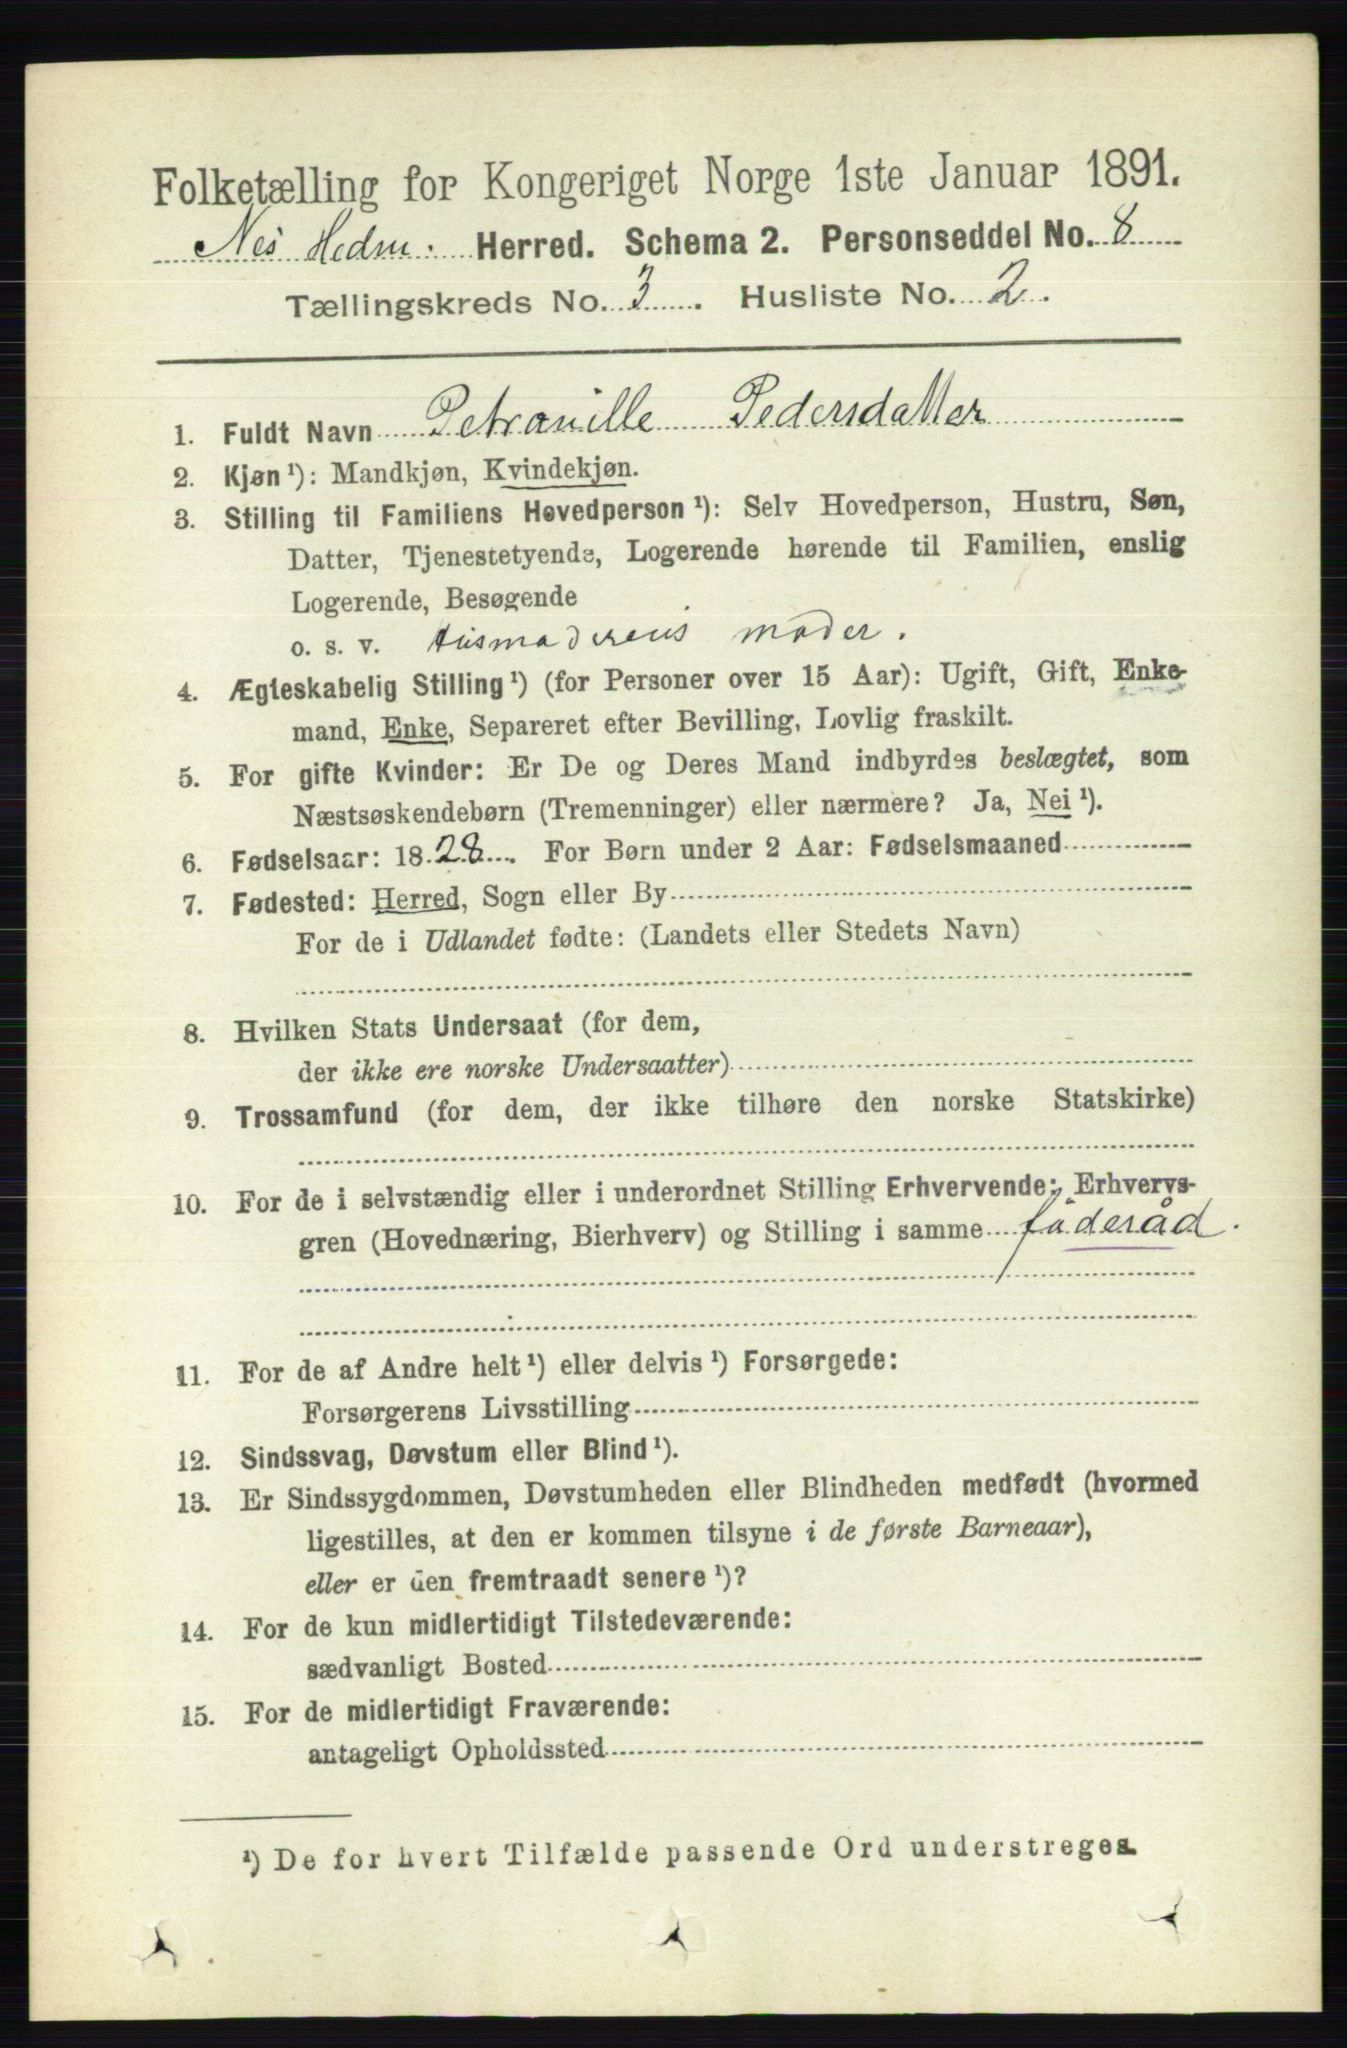 Folketælling for Kongeriget Norge 1ste Januar 1891.
Nes Hedm. Herred. Schema 2. Personseddel No. 8
Tællingskreds No. 3. Husliste No. 2.
1. Fuldt Navn Petronille Pedersdatter
2. Kjøn ¹): Mandkjøn, Kvindekjøn.
3. Stilling til Familiens Hovedperson ¹): Selv Hovedperson, Hustru, Søn,
Datter, Tjenestetyende, Logerende hørende til Familien, enslig
Logerende, Besøgende
o. s. v. Husmoderens moder.
4. Ægteskabelig Stilling ¹) (for Personer over 15 Aar): Ugift, Gift, Enke-
mand, Enke, Separeret efter Bevilling, Lovlig fraskilt.
5. For gifte Kvinder: Er De og Deres Mand indbyrdes beslægtet, som
Næstsøskendebørn (Tremenninger) eller nærmere? Ja, Nei ¹).
6. Fødselsaar: 1828. For Børn under 2 Aar: Fødselsmaaned
7. Fødested: Herred, Sogn eller By
For de i Udlandet fødte: (Landets eller Stedets Navn)
8. Hvilken Stats Undersaat (for dem,
der ikke ere norske Undersaatter)
9. Trossamfund (for dem, der ikke tilhøre den norske Statskirke)
10. For de i selvstændig eller i underordnet Stilling Erhvervende: Erhvervs-
gren (Hovednæring, Bierhverv) og Stilling i samme føderåd.
11. For de af Andre helt ¹) eller delvis ¹) Forsørgede:
Forsørgerens Livsstilling
12. Sindssvag, Døvstum eller Blind ¹).
13. Er Sindssygdommen, Døvstumheden eller Blindheden medfødt (hvormed
ligestilles, at den er kommen tilsyne i de første Barneaar),
eller er den fremtraadt senere ¹)?
14. For de kun midlertidigt Tilstedeværende:
sædvanligt Bosted
15. For de midlertidigt Fraværende:
antageligt Opholdssted
¹) De for hvert Tilfælde passende Ord understreges.